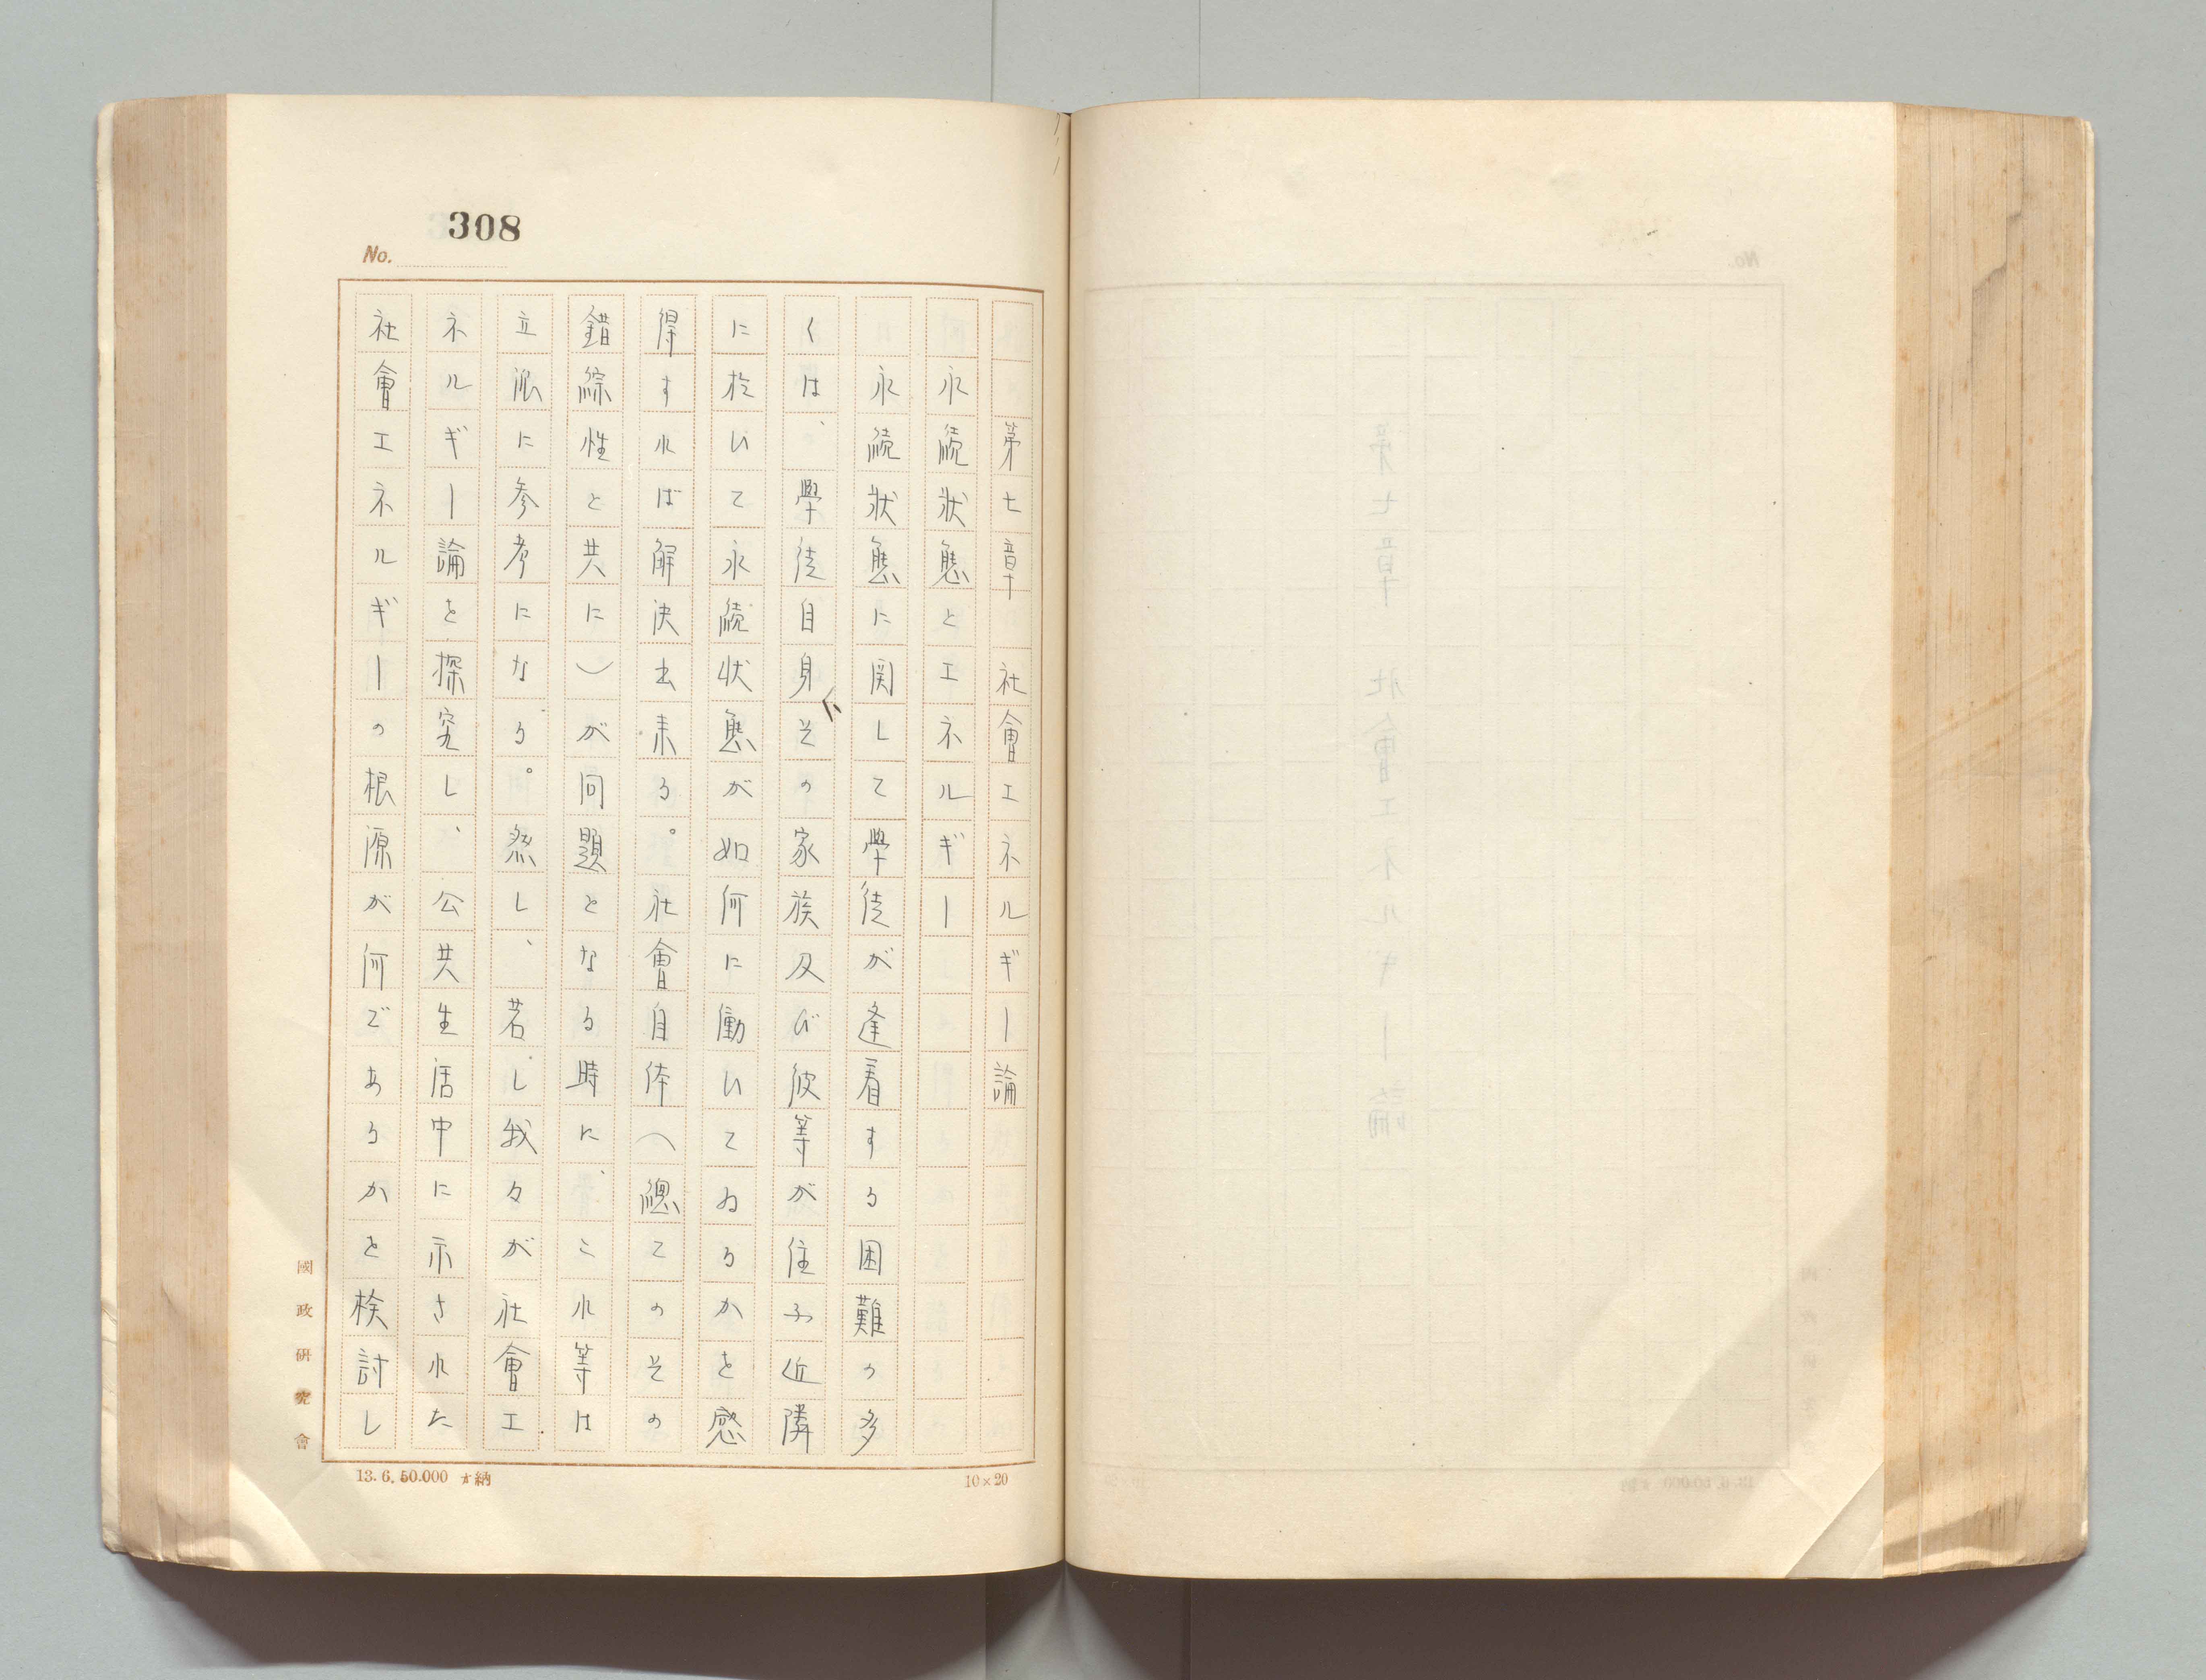 308
No.
第七章 社會エネルギー論
永続状態とエネルギー
永続状態に関して學徒が逢着する困難の多
くは、學徒自身その家族及び彼等が住ふ近隣
に於いて永続状態が如何に働いてゐるかを感
得すれば解決出来る。社會自体(總てのその
錯綜性と共に)が問題となる時に、これ等は
立派に参考になる。然し、若し我々が社會エ
ネルギー論を探究し、公共生活中に示された
社會エネルギーの根源が何であるかを検討し
國政研究會
13.6.50.000 納
10×20